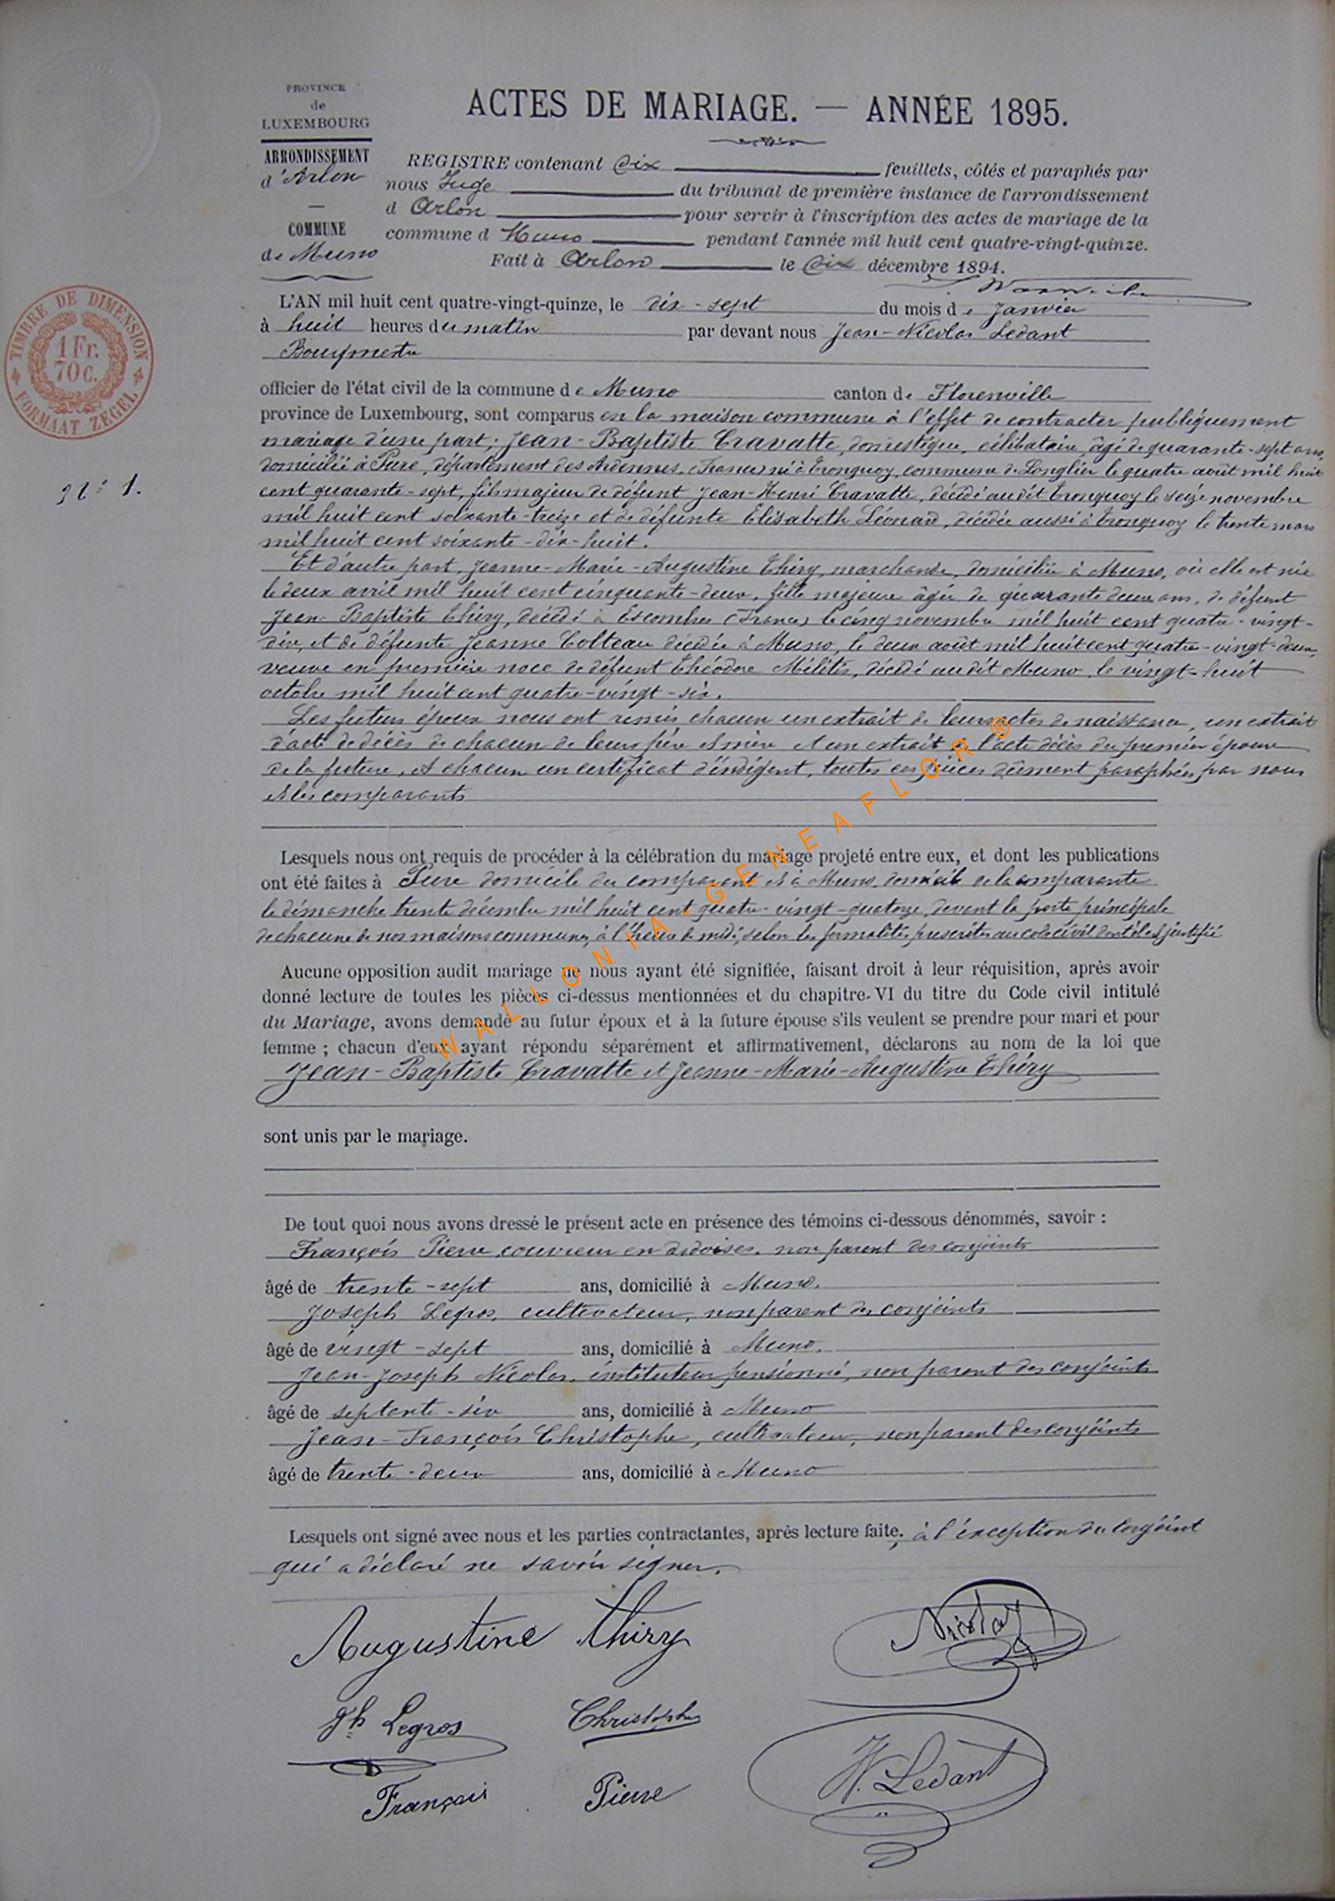 PROVINCE
de
LUXEMBOURG
ARRONDISSEMENT
d'Arlon
COMMUNE
de Muno
ACTES DE MARIAGE. — ANNÉE 1895.
REGISTRE contenant Dix feuillets, côtés et paraphés par
nous Juge du tribunal de première instance de l'arrondissement
d Arlon pour servir à l'inscription des actes de mariage de la
commune d Muno pendant l'année mil huit cent quatre-vingt-quinze.
Fait à Arlon le Dix décembre 1894.
TIMBRE DE DIMENSION
1 Fr.
70 c.
FORMAAT ZEGEL
N° 1.
L'AN mil huit cent quatre-vingt-quinze, le dix-sept du mois de Janvier
à huit heures du matin par devant nous Jean-Nicolas Ledant
Bourgmestre
officier de l'état civil de la commune de Muno canton de Florenville
province de Luxembourg, sont comparus en la maison commune à l'effet de contracter publiquement
mariage d'une part, Jean-Baptiste Cravatte, domestique, célibataire, âgé de quarante-sept ans,
domicilié à Pure, département des Ardennes, (France) né à Tronquoy, commune de Longlier le quatre août mil huit
cent quarante-sept, fils majeur de défunt Jean-Henri Cravatte, décédé audit Tronquoy le seize novembre
mil huit cent soixante-treize et de défunte Elisabeth Léonard, décédée aussi à Tronquoy le trente mars
mil huit cent soixante-dix-huit.
Et d'autre part, Jeanne-Marie-Augustine Thiry, marchande, domiciliée à Muno, où elle est née
le deux avril mil huit cent cinquante-deux, fille majeure âgée de quarante deux ans, de défunt
Jean-Baptiste Thiry, décédé à Escombres (France) le cinq novembre mil huit cent quatre-vingt-
dix, et de défunte Jeanne Colteau décédée à Muno, le deux août mil huit cent quatre-vingt-deux,
veuve en première noce de défunt Théodore Militis, décédé audit Muno, le vingt-huit
octobre mil huit cent quatre-vingt-six.
Les futurs époux nous ont remis chacun un extrait de leurs actes de naissance, un extrait
d'acte de décès de chacun de leurs père et mère et un extrait de l'acte décès du premier époux
de la future, et chacun un certificat d'indigent, toutes ces pièces dûment paraphées par nous
et les comparants
Lesquels nous ont requis de procéder à la célébration du mariage projeté entre eux, et dont les publications
ont été faites à Pure domicile du comparant et à Muno, domicile de la comparante
le dimanche trente décembre mil huit cent quatre-vingt-quatorze, devant la porte principale
de chacune de nos maisons communes, à l'heure de midi, selon les formalités prescrites au code civil dont il est justifié
Aucune opposition audit mariage ne nous ayant été signifiée, faisant droit à leur réquisition, après avoir
donné lecture de toutes les pièces ci-dessus mentionnées et du chapitre VI du titre du Code civil intitulé
du Mariage, avons demandé au futur époux et à la future épouse s'ils veulent se prendre pour mari et pour
femme ; chacun d'eux ayant répondu séparément et affirmativement, déclarons au nom de la loi que
Jean-Baptiste Cravatte et Jeanne-Marie-Augustine Thiry
sont unis par le mariage.
De tout quoi nous avons dressé le présent acte en présence des témoins ci-dessous dénommés, savoir :
François Pierre couvreur en ardoises, non parent des conjoints
âgé de trente-sept ans, domicilié à Muno.
Joseph Legros, cultivateur, non parent des conjoints
âgé de vingt-sept ans, domicilié à Muno.
Jean-Joseph Nicolas, instituteur pensionné, non parent des conjoints
âgé de septante-six ans, domicilié à Muno
Jean-François Christophe, cultivateur, non parent des conjoints
âgé de trente-deux ans, domicilié à Muno
Lesquels ont signé avec nous et les parties contractantes, après lecture faite, à l'exception du conjoint
qui a déclaré ne savoir signer.
Augustine Thiry
Nicolas
Jh Legros
Christophe
François Pierre
N. Ledant
WALLONIA - GENEAFLOR ®